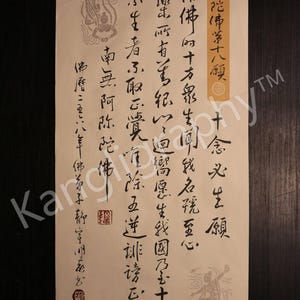 陀佛第十八願
十念必生願
佛時十方眾生聞我名號至心
樂所有善根心心迴嚮願生我國乃至十
生者不取正覺唯除五逆誹謗正
南無阿弥陀佛
佛曆二五六八年 佛弟子靜
Kangligraphy™